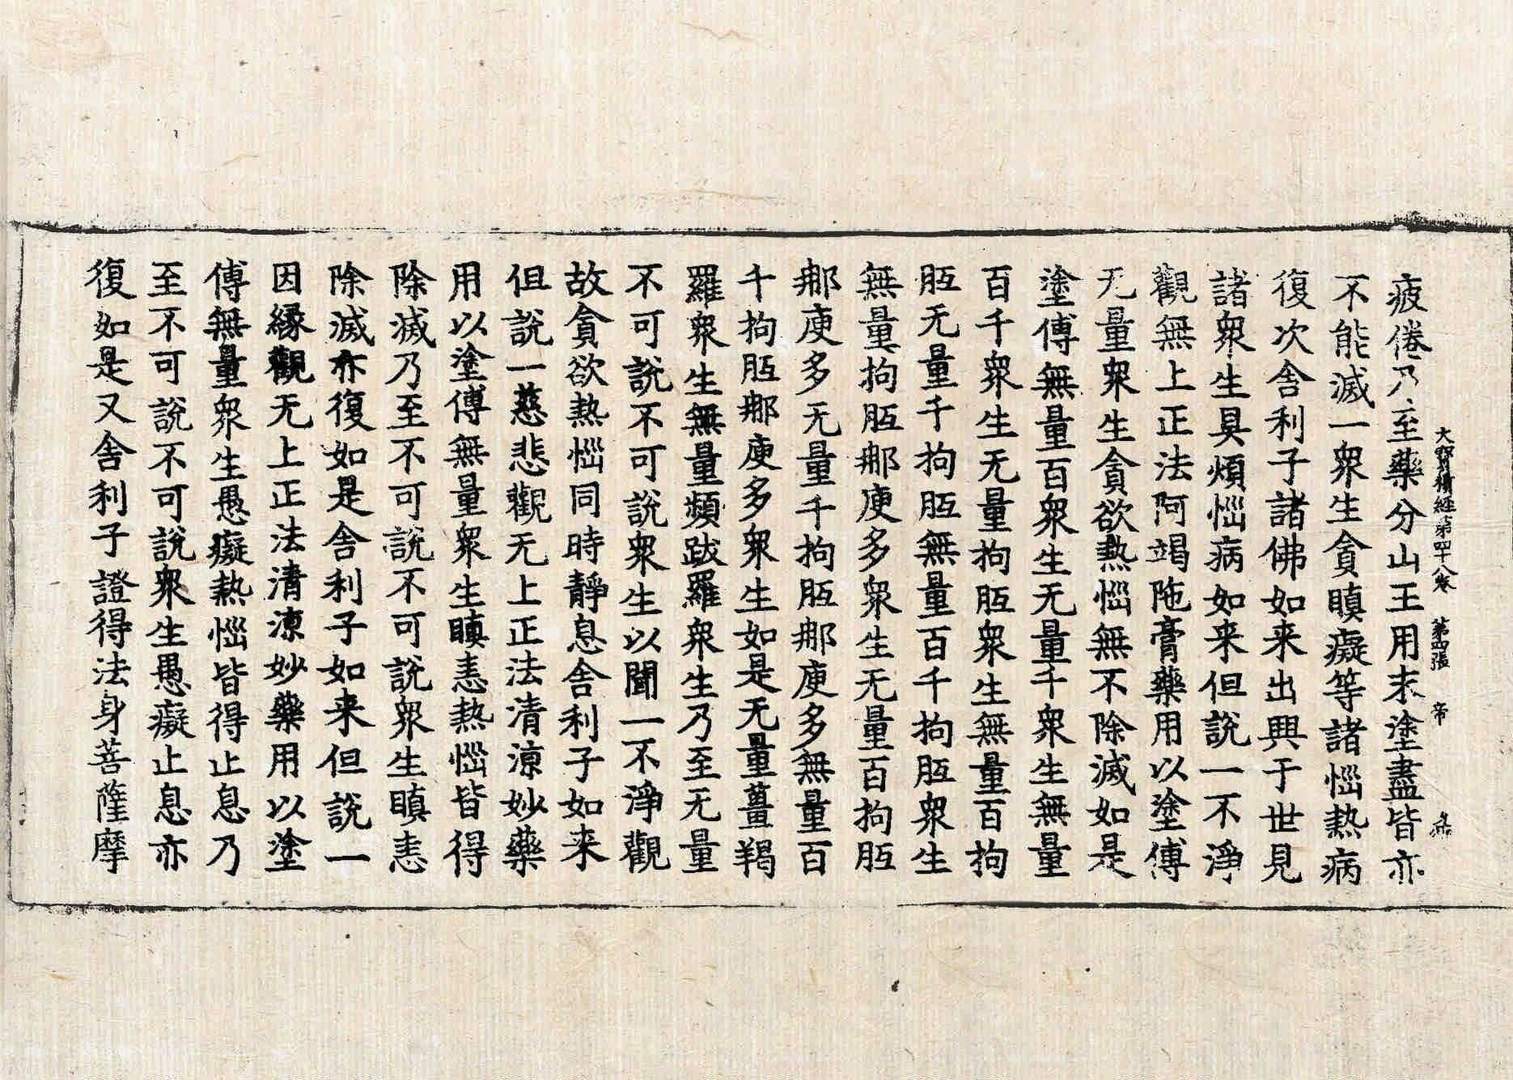 大寶積經第四十八卷 第四張 帝
疲倦乃至藥分山王用末塗盡皆亦
不能滅一衆生貪瞋癡等諸惱熱病
復次舍利子諸佛如来出興于世見
諸衆生具煩惱病如来但說一不淨
觀無上正法阿竭陁膏藥用以塗傅
无量衆生貪欲熱惱無不除滅如是
塗傅無量百衆生无量千衆生無量
百千衆生无量拘胝衆生無量百拘
胝无量千拘胝無量百千拘胝衆生
無量拘胝那庾多衆生无量百拘胝
那庾多无量千拘胝那庾多無量百
千拘胝那庾多衆生如是无量薑羯
羅衆生無量頻跋羅衆生乃至无量
不可說不可說衆生以聞一不淨觀
故貪欲熱惱同時靜息舍利子如来
但說一慈悲觀无上正法清涼妙藥
用以塗傅無量衆生瞋恚熱惱皆得
除滅乃至不可說不可說衆生瞋恚
除滅亦復如是舍利子如来但說一
因緣觀无上正法清涼妙藥用以塗
傅無量衆生愚癡熱惱皆得止息乃
至不可說不可說衆生愚癡止息亦
復如是又舍利子證得法身菩薩摩